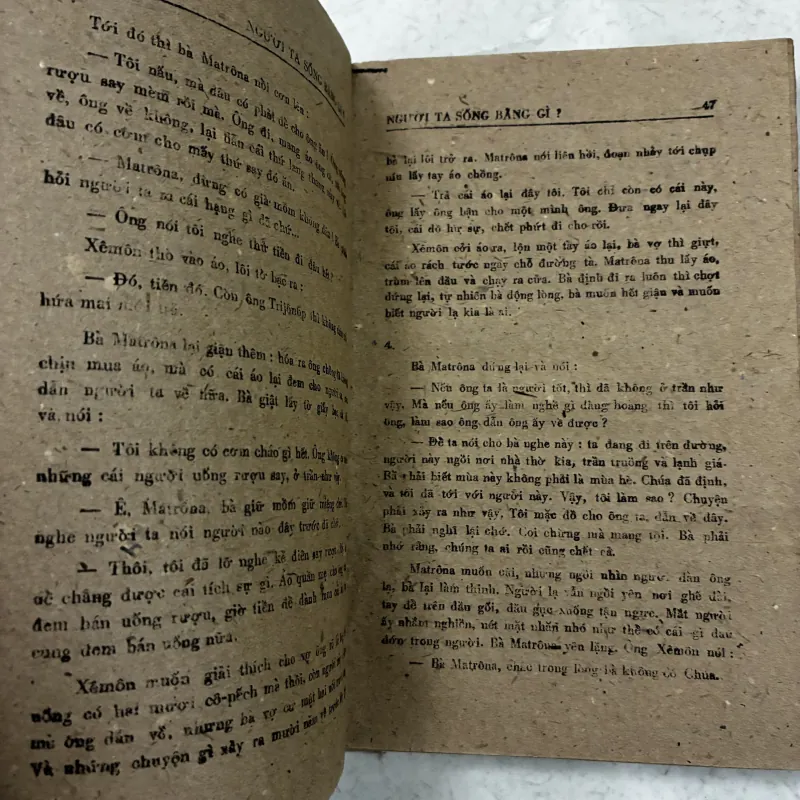 NGƯỜI TA SỐNG BẰNG GÌ ?
Tới đó thì bà Matrôna nổi cơn lên :
— Tôi nấu, mà đâu có phải để cho ông ăn !
rượu say mèm rồi mà. Ông đi, mang áo
về, ông về không, lại dẫn cái thứ lang thang
đâu có cơm cho mấy thứ say đó ăn.
— Matrôna, đừng có già mồm không
hỏi người ta ra cái hạng gì đã chứ...
— Ông nói tôi nghe thử tiền đi đâu hết ?
Xêmôn thò vào áo, lôi tờ bạc ra :
— Đó, tiền đó. Còn ông Trijônôp thì không
hứa mai
Bà Matrôna lại giận thêm : hóa ra ông chồng
chịu mua áo, mà có cái áo lại đem cho người
dẫn người ta về nữa. Bà giật lấy tờ giấy bạc
và nói :
— Tôi không có cơm cháo gì hết. Ông không
những cái người uống rượu say, ở trần như vậy.
— Ê, Matrôna, bà giữ mồm giữ miệng
nghe người ta nói người nào đây trước đã chứ.
— Thôi, tôi đã lỡ nghe kẻ điên say rượu
về chẳng được cái tích sự gì. Áo quần mẹ
đem bán uống rượu, giờ tiền để dành
cũng đem bán uống nữa.
Xêmôn muốn giải thích cho vợ ông rõ là
uống có hai mươi cô-pếch mà thôi, còn người
mà ông dẫn về, nhưng bà vợ cứ một hai nói
Và những chuyện gì xảy ra mười năm về trước
NGƯỜI TA SỐNG BẰNG GÌ ? 47
bà lại lôi trở ra. Matrôna nói liên hồi, đoạn nhảy tới chụp
níu lấy tay áo chồng.
— Trả cái áo lại đây tôi. Tôi chỉ còn có cái này,
ông lấy ông bận cho một mình ông. Đưa ngay lại đây
tôi, cái đồ hư sự, chết phứt đi cho rồi.
Xêmôn cởi áo ra, lộn một tay áo lại, bà vợ thì giựt,
cái áo rách tước ngay chỗ đường tà. Matrôna thu lấy áo,
trùm lên đầu và chạy ra cửa. Bà định đi ra luôn thì chợt
đứng lại, tự nhiên bà động lòng, bà muốn hết giận và muốn
biết người lạ kia là ai.
4.
Bà Matrôna đứng lại và nói :
— Nếu ông ta là người tốt, thì đã không ở trần như
vậy. Mà nếu ông ấy làm nghề gì đàng hoàng, thì tôi hỏi
ông, làm sao ông dẫn ông ấy về được ?
— Để ta nói cho bà nghe này : ta đang đi trên đường,
người này ngồi nơi nhà thờ kia, trần truồng và lạnh giá.
Bà phải biết mùa này không phải là mùa hè. Chúa đã định,
và tôi đã tới với người này. Vậy, tôi làm sao ? Chuyện
phải xảy ra như vậy. Tôi mặc đồ cho ông ta, dẫn về đây.
Bà phải nghĩ lại chớ. Coi chừng mà mang tội. Bà phải
nhớ rằng, chúng ta ai rồi cũng chết cả.
Matrôna muốn cãi, nhưng ngồi nhìn người đàn ông
lạ, bà lại làm thinh. Người lạ vẫn ngồi yên nơi ghế dài,
tay để trên đầu gối, đầu gục xuống tận ngực. Mắt người
ấy nhắm nghiền, nét mặt nhăn nhó như thể có cái gì đau
đớn trong người. Bà Matrôna yên lặng. Ông Xêmôn nói :
— Bà Matrôna, chắc trong lòng bà không có Chúa.